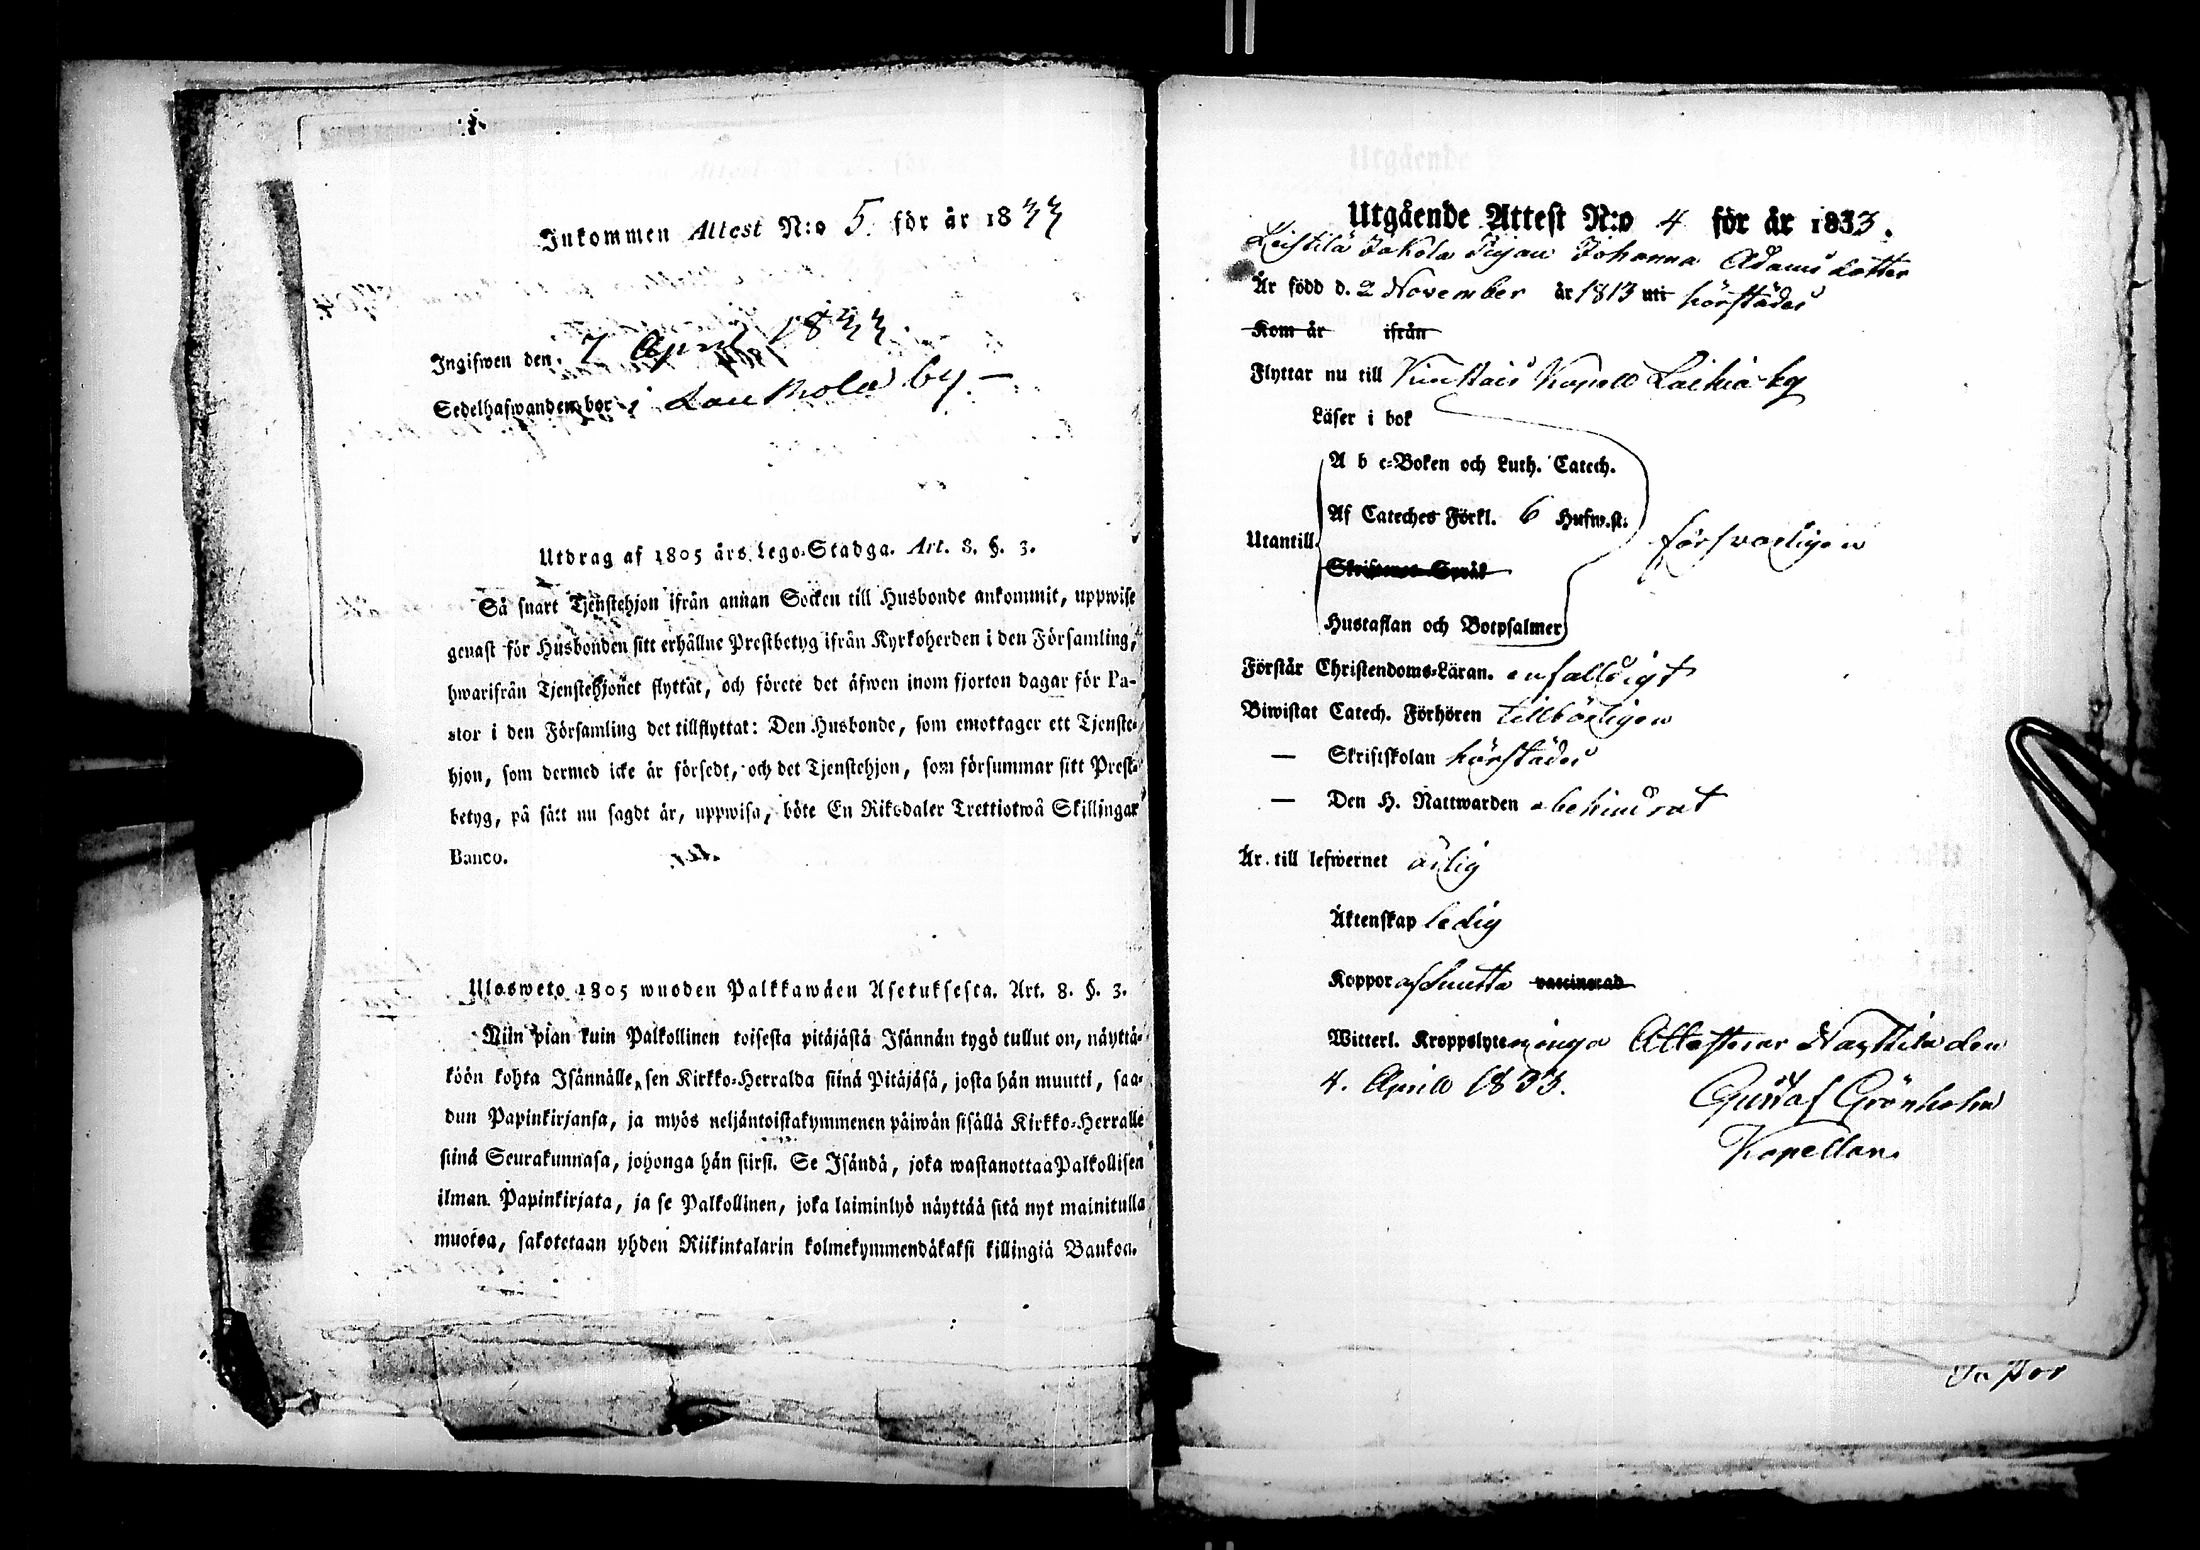 Inkommen Attest N:o 5. för år 1833
Ingifwen den 7 April 1833
Sedelhafwanden bor i Laukola by.
Utdrag af 1805 års Lego-Stadga. Art. 8. §. 3.
Så snart Tjenstehjon ifrån annan Socken till Husbonde ankommit, uppwise
genast för Husbonden sitt erhållne Prestbetyg ifrån Kyrkoherden i den Församling,
hwarifrån Tjenstehjonet flyttat, och förete det äfwen inom fjorton dagar för Pa-
stor i den Församling det tillflyttat: Den Husbonde, som emottager ett Tjenste-
hjon, som dermed icke är försedt, och det Tjenstehjon, som försummar sitt Prest-
betyg, på sätt nu sagdt är, uppwisa, böte En Riksdaler Trettiotwå Skillingar
Banco.
Ulosweto 1805 wuoden Palkkawäen Asetuksesta. Art. 8. §. 3.
Niin pian kuin Palkollinen toisesta pitäjästä Isännän tygö tullut on, näyttä-
köön kohta Isännälle, sen Kirkko-Herralda siinä Pitäjäsä, josta hän muutti, saa-
dun Papinkirjansa, ja myös neljäntoistakymmenen päiwän sisällä Kirkko-Herralle
siinä Seurakunnasa, johonga hän siirsi. Se Isändä, joka wastanottaa Palkollisen
ilman Papinkirjata, ja se Palkollinen, joka laiminlyö näyttää sitä nyt mainitulla
muotoa, sakotetaan yhden Riikintalarin kolmekymmendäkaksi killingiä Bankoa.
Utgående Attest N:o 4 för år 1833.
Leistilä Jakola Pigan Johanna Adams dotter
Är född d. 2 November år 1813 uti härstädes
Kom år ifrån
Flyttar nu till Kapell by
Läser i bok
A b c-Boken och Luth. Catech.
Af Cateches Förkl. 6 Hufw.st.
Utantill försvarligen
Skriftenes Språk
Hustaflan och Botpsalmer
Förstår Christendoms-Läran. enfalldigt
Biwistat Catech. Förhören tillbörligen
— Skriftskolan härstädes
— Den H. Nattwarden obehindrat
Är till lefwernet ärlig
Äktenskap ledig
Koppor afslutta vaccinerad
Witterl. Kroppslyten inga Attesterar Nakkila den
4. Aprill 1833.
Gustaf Grönholm
Kapellan.